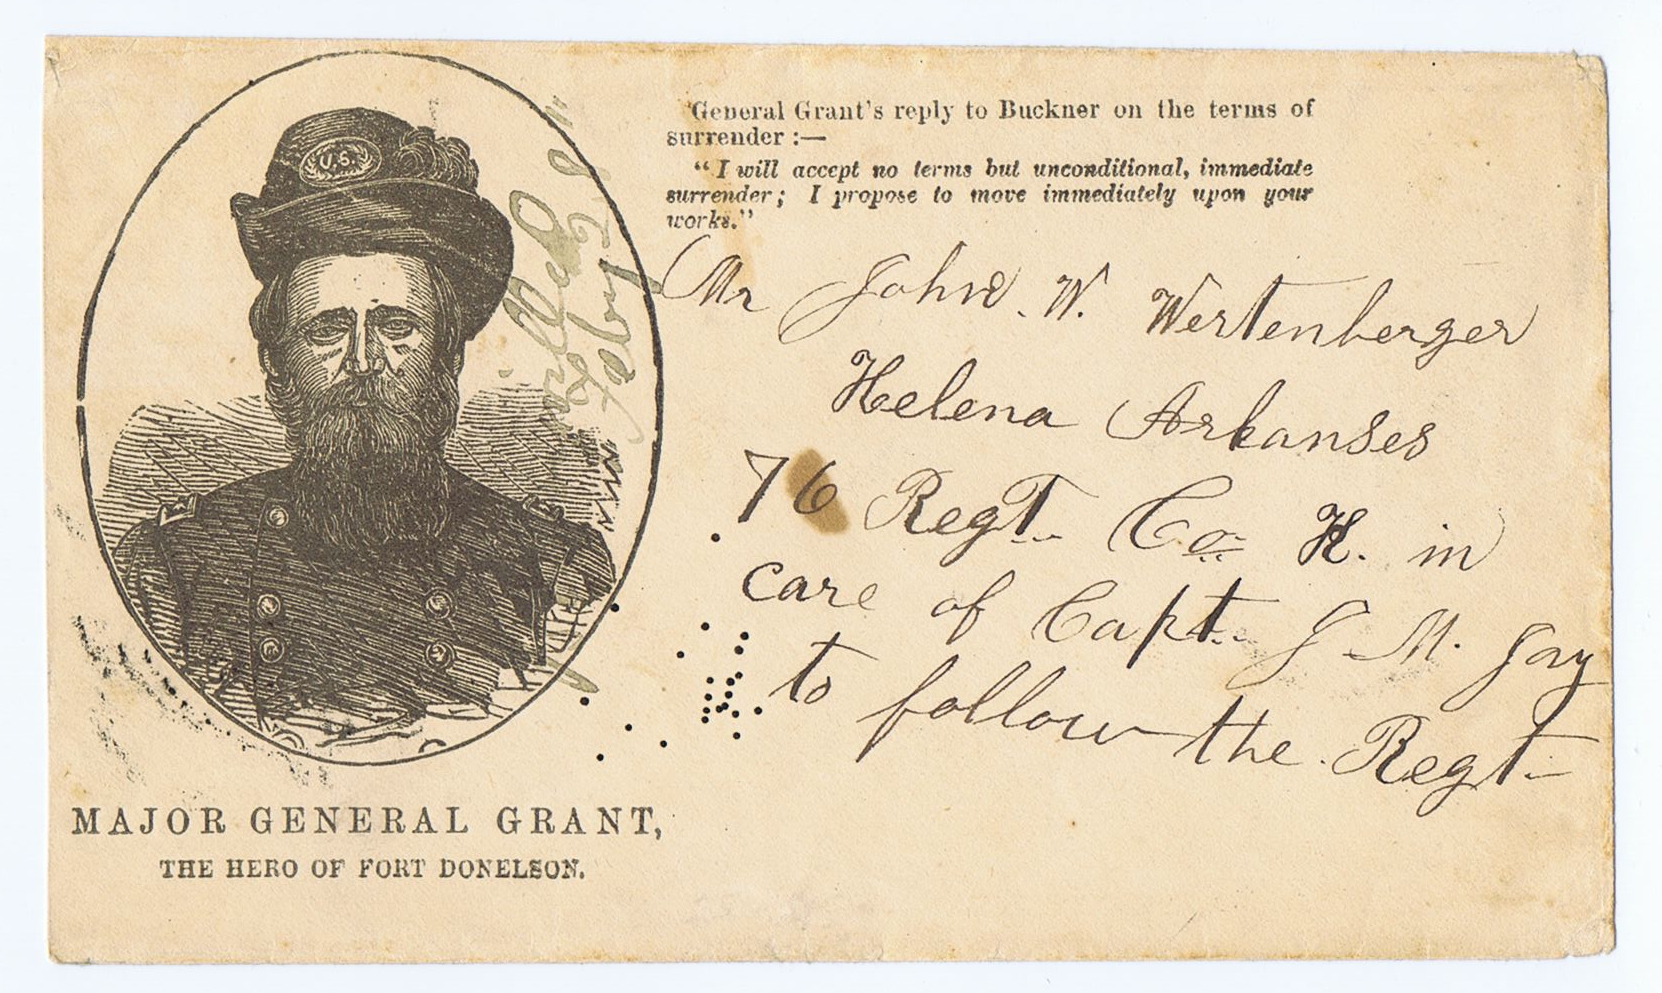 U.S.
General Grant's reply to Buckner on the terms of
surrender :—
"I will accept no terms but unconditional, immediate
surrender; I propose to move immediately upon your
works."
Mr John. W. Wertenberger
Helena Arkanses
76 Regt. Co. H. in
care of Capt. J. M. Jay
to follow the Regt
MAJOR GENERAL GRANT,
THE HERO OF FORT DONELSON.